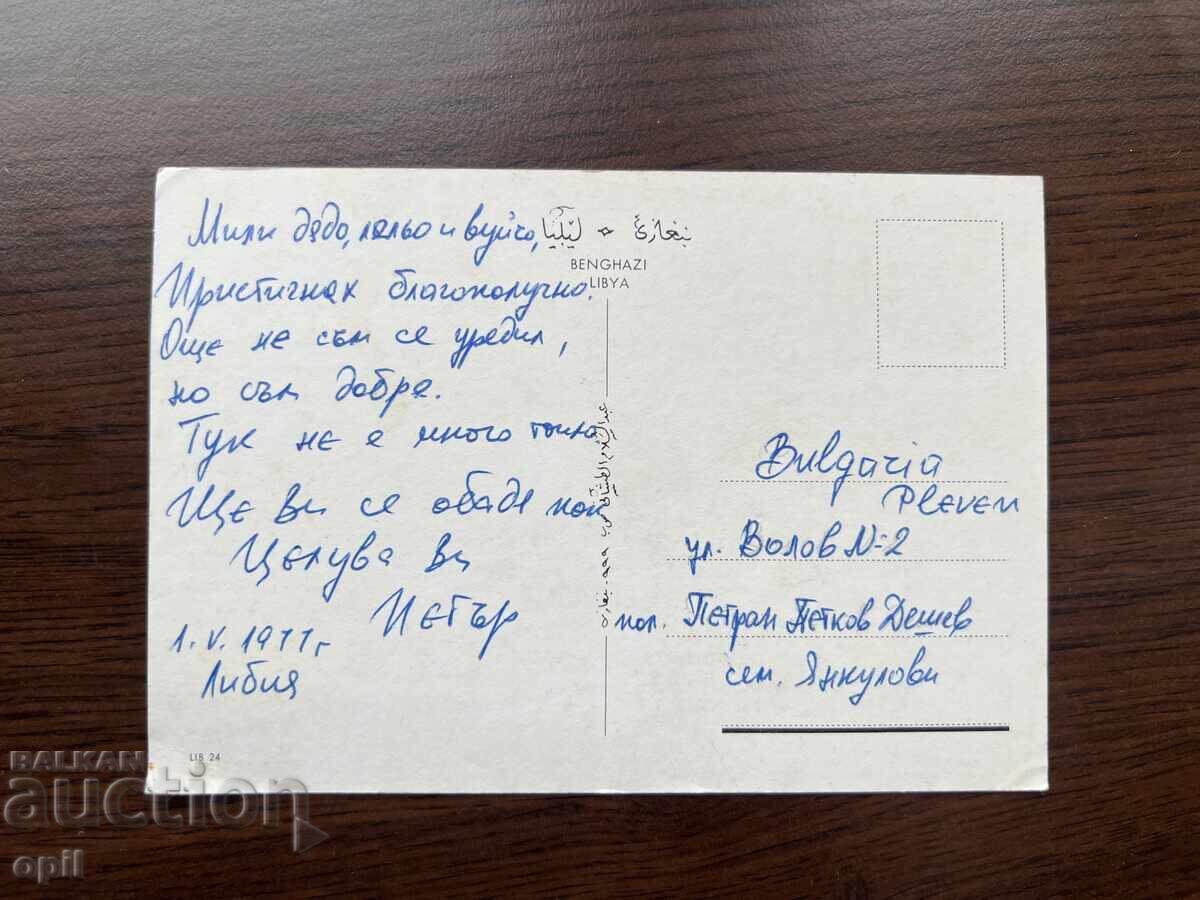 Мили дядо, лельо и вуйчо,
Пристигнах благополучно.
Още не съм се уредил,
но съм добре.
Тук не е много топло
Ще ви се обадя пак
Целува ви
Петър
1.V.1977 г
Либия
LIB 24
ليبيا ☆ بنغازي
BENGHAZI
LIBYA
Bulgaria
Pleven
ул. Волов №2
пол. Петран Петков Дешев
сем. Янкулови
BALKAN
auction
opil